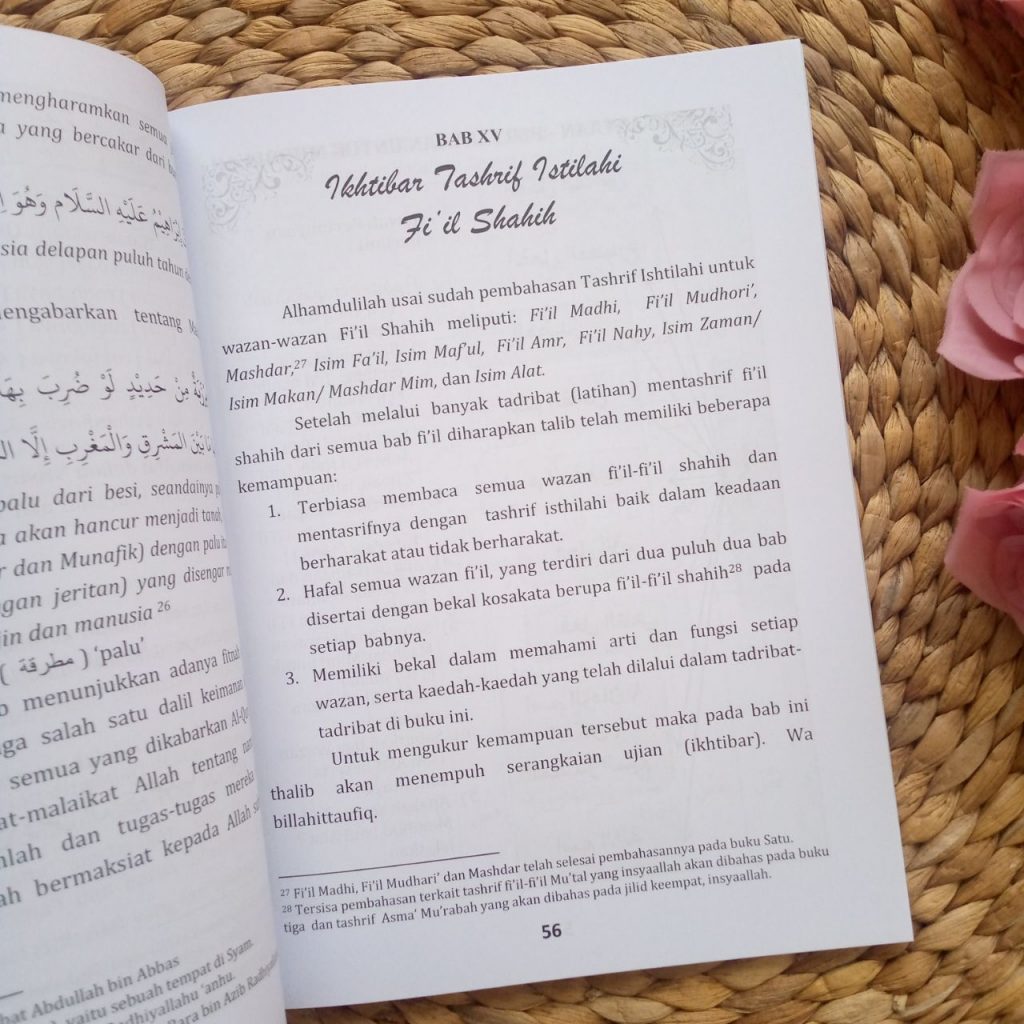 mengharamkan semua
yang bercakar dari
عَلَيْهِ السَّلَام وَهُوَ
sia delapan puluh tahun
mengabarkan tentang
مِنْ حَدِيْدٍ لَوْ ضُرِبَ بِهَا
بَيْنَ المَشْرِقِ وَالْمَغْرِبِ إِلَّا
palu dari besi, seandainya
akan hancur menjadi tanah,
dan Munafik) dengan palu
jeritan) yang disengar
jin dan manusia 26
( مطرقة ) 'palu'
menunjukkan adanya fitnah
salah satu dalil keimanan
semua yang dikabarkan
at-malaikat Allah tentang
dan tugas-tugas mereka
bermaksiat kepada Allah
Abdullah bin Abbas
yaitu sebuah tempat di Syam.
'anhu.
bin Azib
BAB XV
Ikhtibar Tashrif Istilahi
Fi'il Shahih
Alhamdulilah usai sudah pembahasan Tashrif Ishtilahi untuk
wazan-wazan Fi'il Shahih meliputi: Fi'il Madhi, Fi'il Mudhori',
Mashdar,27 Isim Fa'il, Isim Maf'ul, Fi'il Amr, Fi'il Nahy, Isim Zaman/
Isim Makan/ Mashdar Mim, dan Isim Alat.
Setelah melalui banyak tadribat (latihan) mentashrif fi'il
shahih dari semua bab fi'il diharapkan talib telah memiliki beberapa
kemampuan:
1. Terbiasa membaca semua wazan fi'il-fi'il shahih dan
mentasrifnya dengan tashrif isthilahi baik dalam keadaan
berharakat atau tidak berharakat.
2. Hafal semua wazan fi'il, yang terdiri dari dua puluh dua bab
disertai dengan bekal kosakata berupa fi'il-fi'il shahih28 pada
setiap babnya.
3. Memiliki bekal dalam memahami arti dan fungsi setiap
wazan, serta kaedah-kaedah yang telah dilalui dalam tadribat-
tadribat di buku ini.
Untuk mengukur kemampuan tersebut maka pada bab ini
thalib akan menempuh serangkaian ujian (ikhtibar). Wa
billahittaufiq.
27 Fi'il Madhi, Fi'il Mudhari' dan Mashdar telah selesai pembahasannya pada buku Satu.
28 Tersisa pembahasan terkait tashrif fi'il-fi'il Mu'tal yang insyaallah akan dibahas pada buku
tiga dan tashrif Asma' Mu'rabah yang akan dibahas pada jilid keempat, insyaallah.
56